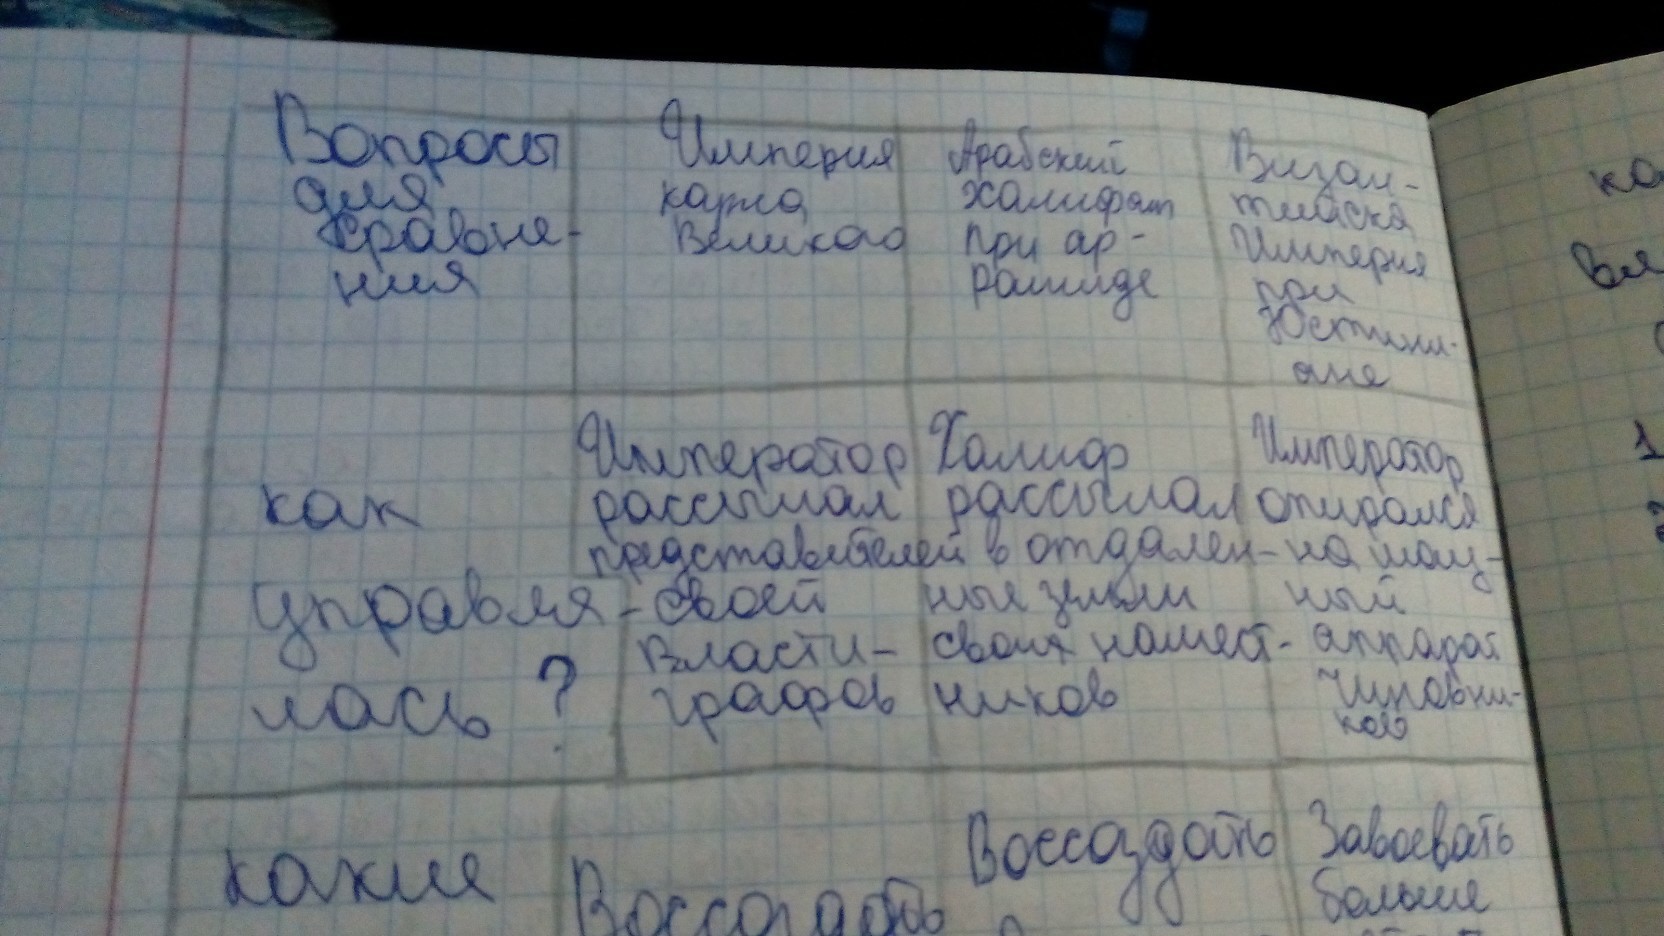 Вопросы
для
сравне-
ния
Империя
карла
Великого
Арабский
халифат
при ар-
рашиде
Визан-
тийска
Империя
при
Юстини-
ане
как
управля-
лась ?
Император
рассылал
представителей
своей
власти-
графов
Халиф
рассылал
в отдален-
ные земли
своих намест-
ников
Император
опирался
на мощ-
ный
аппарат
чиновни-
ков
какие
Воссоздать
Воссоздать
Завоевать
больше
ка
1